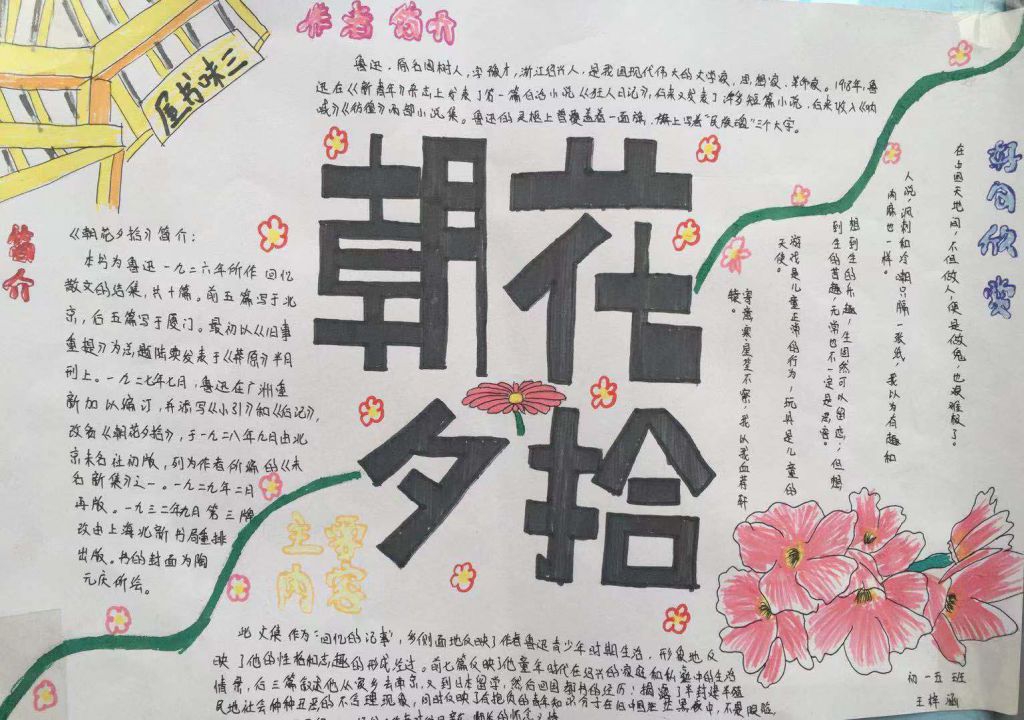 三味书屋
作者简介
鲁迅，原名周树人，字豫才，浙江绍兴人，是我国现代伟大的文学家、思想家、革命家。1918年，鲁
迅在《新青年》杂志上发表了第一篇白话小说《狂人日记》，后来又发表了许多短篇小说，后来收入《呐
喊》《彷徨》两部小说集。鲁迅的灵柩上曾覆盖着一面旗，旗上写着"民族魂"三个大字。
朝花
夕拾
简介
《朝花夕拾》简介：
本书为鲁迅一九二六年所作回忆
散文的结集，共十篇。前五篇写于北
京，后五篇写于厦门。最初以《旧事
重提》为总题陆续发表于《莽原》半月
刊上。一九二七年七月，鲁迅在广州重
新加以编订，并添写《小引》和《后记》，
改名《朝花夕拾》，于一九二八年九月由北
京未名社初版，列为作者所编的《未
名新集》之一。一九二九年二月
再版。一九三二年九月第三版
改由上海北新书局重排
出版。书的封面为陶
元庆所绘。
好句欣赏
在占园天地间，不但做人，便是做鬼，也艰难极了。
人说，讽刺和冷嘲只隔一张纸，我以为有趣和
肉麻也一样。
想到生的乐趣，生固然可以留恋；但想
到生的苦趣，无常也不一定是恶客。
游戏是儿童正常的行为，玩具是儿童的
天使。
寄意寒星荃不察，我以我血荐轩
辕。
主要
内容
此文集作为"回忆的记事"，多侧面地反映了作者鲁迅青少年时期生活，形象地反
映了他的性格和志趣的形成经过。前七篇反映了他童年时代在绍兴的家庭和私塾中的生活
情景，后三篇叙述他从家乡去南京，又到日本留学，然后回国教书的经历；揭露了半封建半殖
民地社会种种丑恶的不合理现象，同时反映了有抱负的青年知识分子在旧中国茫茫黑夜中，不畏艰险，
初一五班
王梓涵